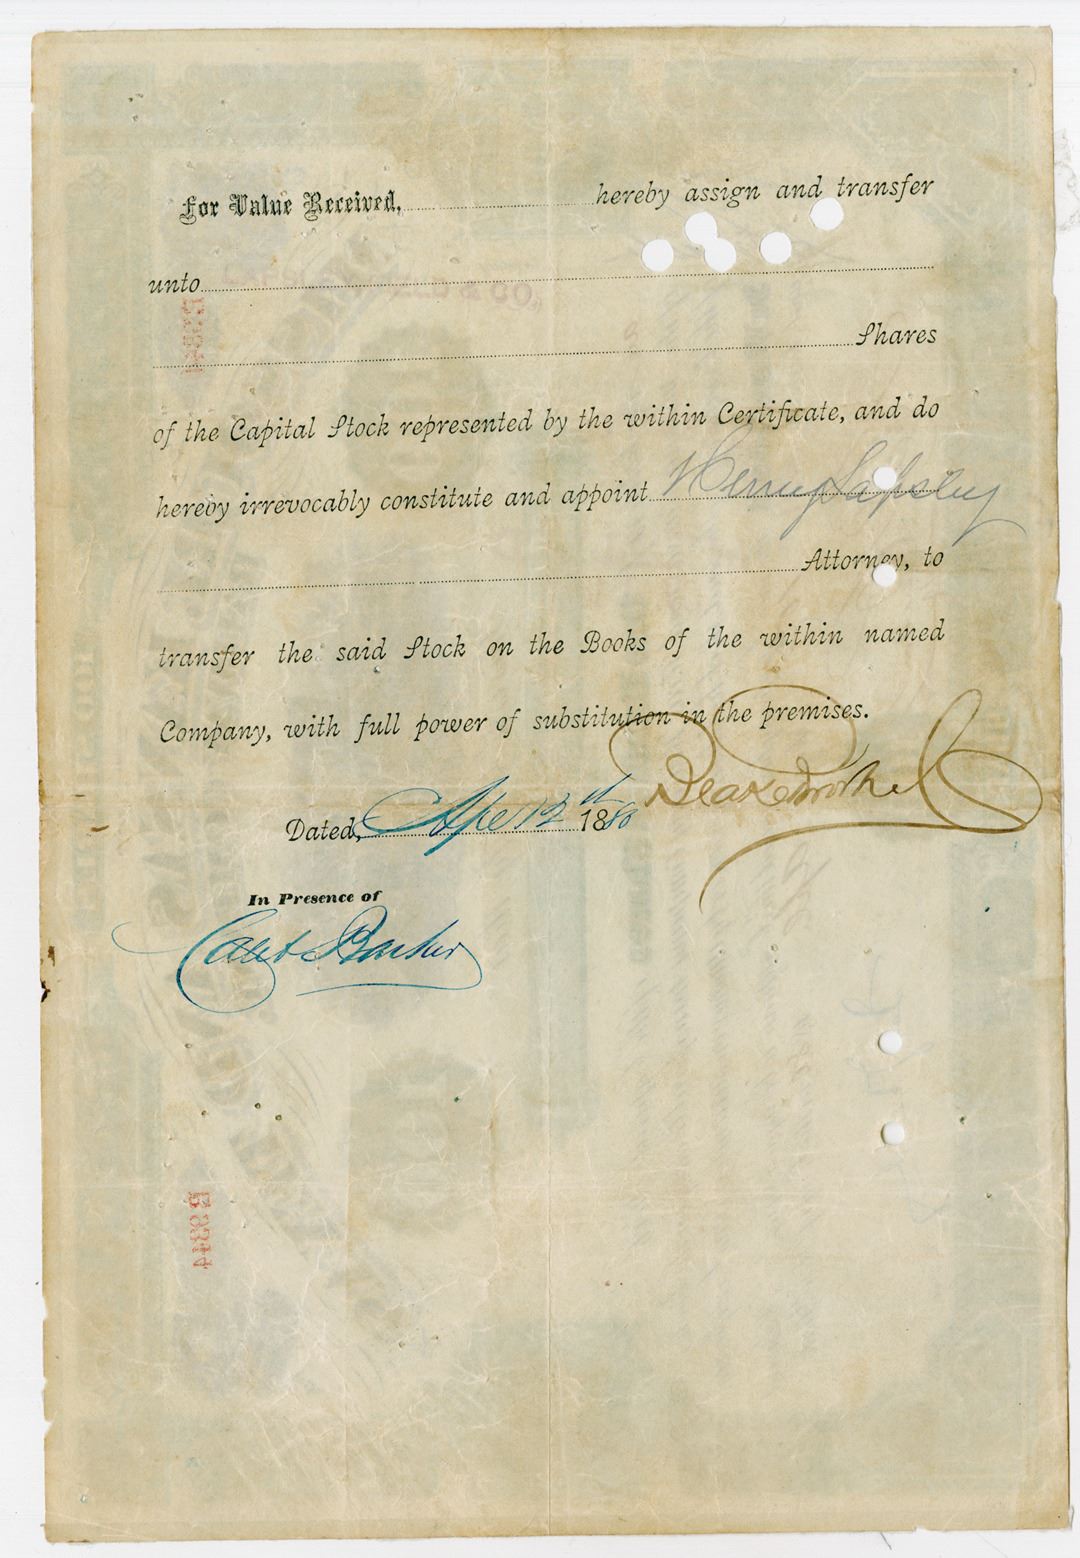 For Value Received, hereby assign and transfer
unto
Shares
of the Capital Stock represented by the within Certificate, and do
hereby irrevocably constitute and appoint Henry Lapsley
Attorney, to
transfer the said Stock on the Books of the within named
Company, with full power of substitution in the premises.
Dated, Apr 12th 1880
In Presence of
Barker